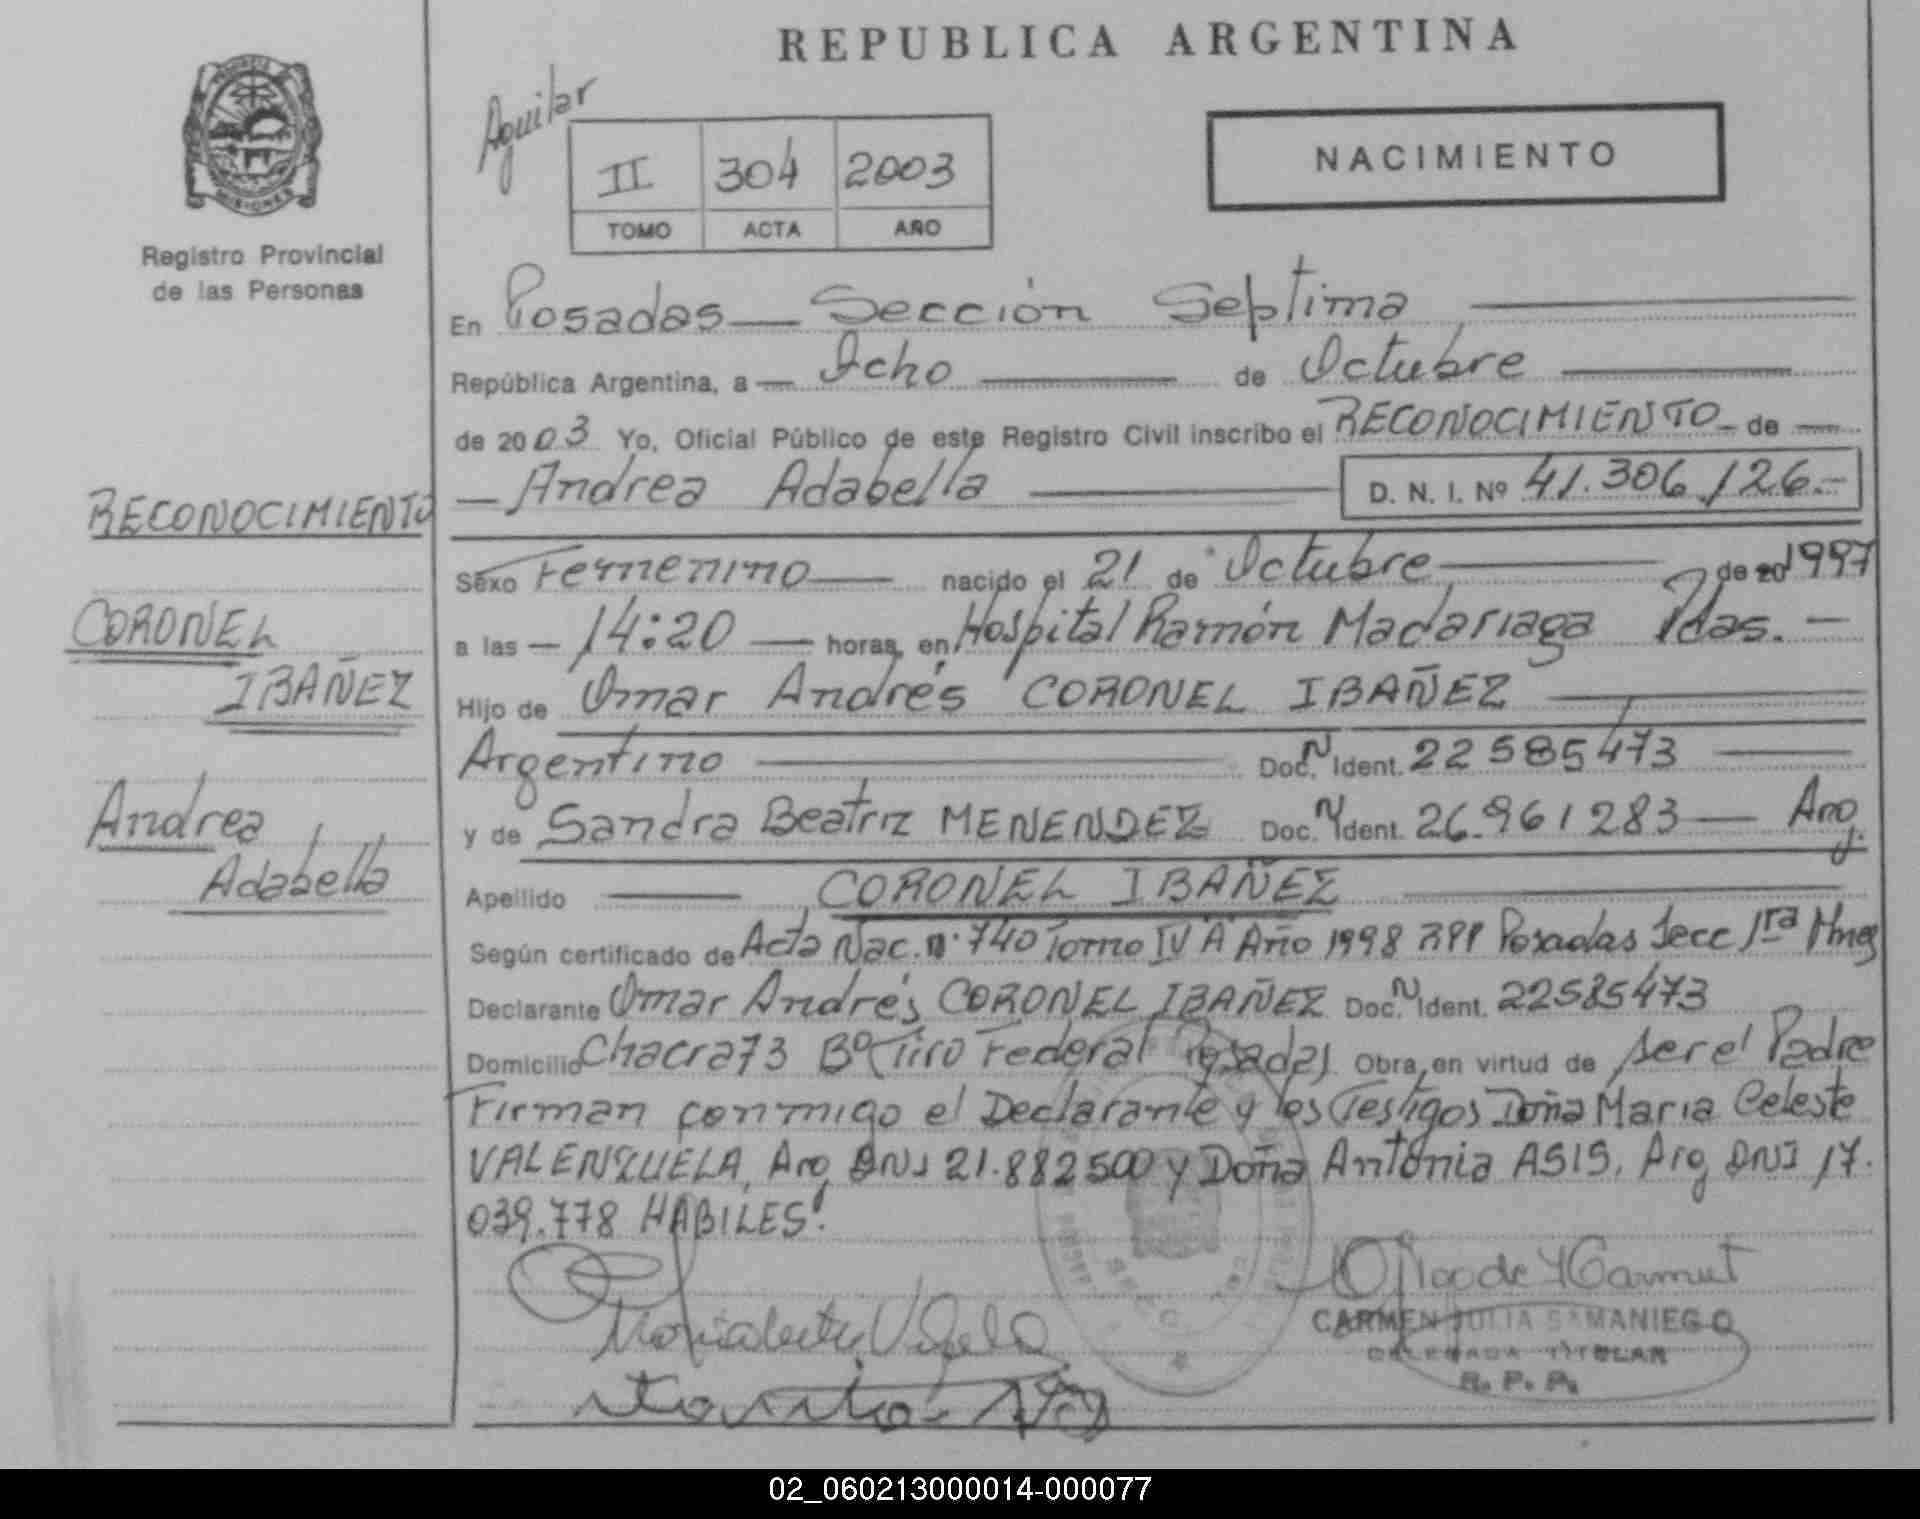 REPUBLICA ARGENTINA
PROVINCIA MISIONES
Registro Provincial
de las Personas
Aguilar
II 304 2003
TOMO ACTA AÑO
NACIMIENTO
En Posadas — Sección Septima
República Argentina, a — Ocho — de Octubre
de 2003 Yo, Oficial Público de este Registro Civil inscribo el RECONOCIMIENTO — de —
— Andrea Adabella — D. N. I. Nº 41.306.126.-
RECONOCIMIENTO
CORONEL
IBAÑEZ
Andrea
Adabella
Sexo Femenino — nacido el 21 de Octubre — de 20 1997
a las — 14:20 — horas, en Hospital Ramón Madariaga Pdas. —
Hijo de Omar Andrés CORONEL IBAÑEZ
Argentino — Doc. N Ident. 22585473
y de Sandra Beatriz MENENDEZ Doc. N Ident. 26.961283 — Arg.
Apellido — CORONEL IBAÑEZ
Según certificado de Acta Nac. nº 740 Tomo IV A Año 1998 RPP Posadas Secc 1ra Mnes
Declarante Omar Andrés CORONEL IBAÑEZ Doc. N Ident. 22585473
Domicilio Chacra 73 Bº Tiro Federal Posadas. Obra en virtud de ser el Padre
Firman conmigo el Declarante y los Testigos Doña Maria Celeste
VALENZUELA, Arg DNI 21.882500 y Doña Antonia ASIS, Arg DNI 17.
039.778 HABILES.
CARMEN JULIA SAMANIEGO
DELEGADA TITULAR
R. P. P.
02_060213000014-000077